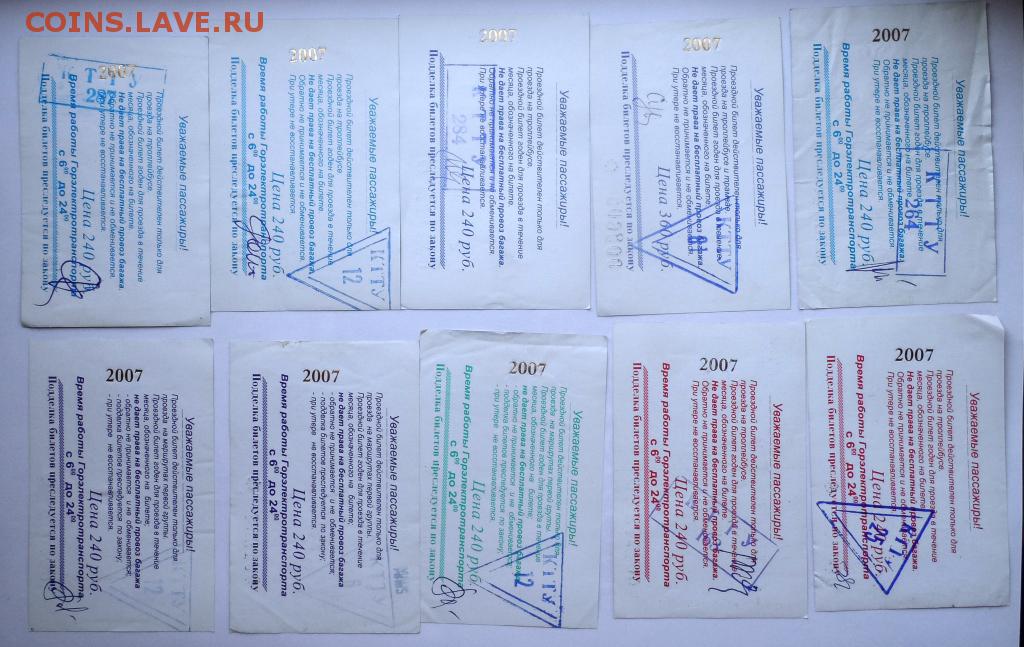 COINS.LAVE.РУ
2007
Уважаемые пассажиры!
Проездной билет действителен только для
проезда на троллейбусе.
Проездной билет годен для проезда в течение
месяца, обозначенного на билете.
Не дает права на бесплатный провоз багажа.
Обратно не принимается и не обменивается.
При утере не восстанавливается.
Цена 240 руб.
Время работы Горэлектротранспорта
с 6⁰⁰ до 24⁰⁰
Подделка билетов преследуется по закону
2007
Уважаемые пассажиры!
Проездной билет действителен только для
проезда на троллейбусе.
Проездной билет годен для проезда в течение
месяца, обозначенного на билете.
Не дает права на бесплатный провоз багажа.
Обратно не принимается и не обменивается.
При утере не восстанавливается.
Цена 240 руб.
Время работы Горэлектротранспорта
с 6⁰⁰ до 24⁰⁰
Подделка билетов преследуется по закону
КТТУ
12
2007
Уважаемые пассажиры!
Проездной билет действителен только для
проезда на троллейбусе.
Проездной билет годен для проезда в течение
месяца, обозначенного на билете.
Обратно не принимается и не обменивается.
При утере не восстанавливается.
Цена 240 руб.
Подделка билетов преследуется по закону
КТТУ
284
2007
Уважаемые пассажиры!
Проездной билет действителен только для
проезда на троллейбусе и трамвае.
Проездной билет годен для проезда в течение
месяца, обозначенного на билете.
Не дает права на бесплатный провоз багажа.
Обратно не принимается и не обменивается.
При утере не восстанавливается.
Цена 360 руб.
Подделка билетов преследуется по закону
КТТУ
2007
Уважаемые пассажиры!
Проездной билет действителен только для
проезда на троллейбусе.
Проездной билет годен для проезда в течение
месяца, обозначенного на билете.
Не дает права на бесплатный провоз багажа.
Обратно не принимается и не обменивается.
При утере не восстанавливается.
Цена 240 руб.
Время работы Горэлектротранспорта
с 6⁰⁰ до 24⁰⁰
Подделка билетов преследуется по закону
КТТУ
264
2007
Уважаемые пассажиры!
Проездной билет действителен только для
проезда на маршрутах первой группы.
Проездной билет годен для проезда в течение
месяца, обозначенного на билете,
не дает права на бесплатный провоз багажа
- обратно не принимается и не обменивается;
- подделка билетов преследуется по закону;
- при утере не восстанавливается.
Цена 240 руб.
Время работы Горэлектротранспорта
с 6⁰⁰ до 24⁰⁰
Подделка билетов преследуется по закону
2007
Уважаемые пассажиры!
Проездной билет действителен только для
проезда на маршрутах первой группы.
Проездной билет годен для проезда в течение
месяца, обозначенного на билете,
не дает права на бесплатный провоз багажа
- обратно не принимается и не обменивается;
- подделка билетов преследуется по закону;
- при утере не восстанавливается.
Цена 240 руб.
Время работы Горэлектротранспорта
с 6⁰⁰ до 24⁰⁰
Подделка билетов преследуется по закону
2007
Уважаемые пассажиры!
Проездной билет действителен только для
проезда на маршрутах первой группы.
Проездной билет годен для проезда в течение
месяца, обозначенного на билете,
не дает права на бесплатный провоз багажа
- обратно не принимается и не обменивается;
- подделка билетов преследуется по закону;
- при утере не восстанавливается.
Цена 240 руб.
Время работы Горэлектротранспорта
с 6⁰⁰ до 24⁰⁰
Подделка билетов преследуется по закону
КТТУ
12
2007
Уважаемые пассажиры!
Проездной билет действителен только для
проезда на троллейбусе.
Проездной билет годен для проезда в течение
месяца, обозначенного на билете.
Не дает права на бесплатный провоз багажа.
Обратно не принимается и не обменивается.
При утере не восстанавливается.
Цена 240 руб.
Время работы Горэлектротранспорта
с 6⁰⁰ до 24⁰⁰
Подделка билетов преследуется по закону
2007
Уважаемые пассажиры!
Проездной билет действителен только для
проезда на троллейбусе.
Проездной билет годен для проезда в течение
месяца, обозначенного на билете.
Не дает права на бесплатный провоз багажа.
Обратно не принимается и не обменивается.
При утере не восстанавливается.
Цена 240 руб.
Время работы Горэлектротранспорта
с 6⁰⁰ до 24⁰⁰
Подделка билетов преследуется по закону
25